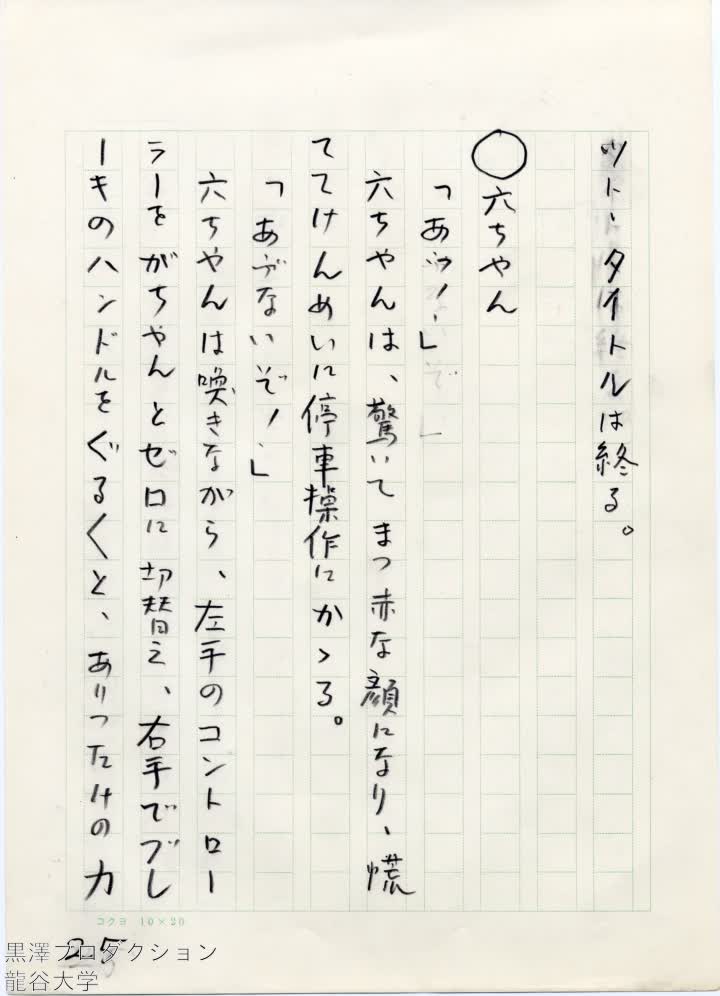 ツト・タイトルは終る。
○六ちやん
「あッ！」
六ちやんは、驚いてまつ赤な顔になり、慌
ててけんめいに停車操作にかゝる。
「あぶないぞ！」
六ちやんは喚きながら、左手のコントロー
ラーをがちやんとゼロに切替え、右手でブレ
ーキのハンドルをぐる〱と、ありつたけの力
コクヨ 10×20
25
黒澤プロダクション
龍谷大学